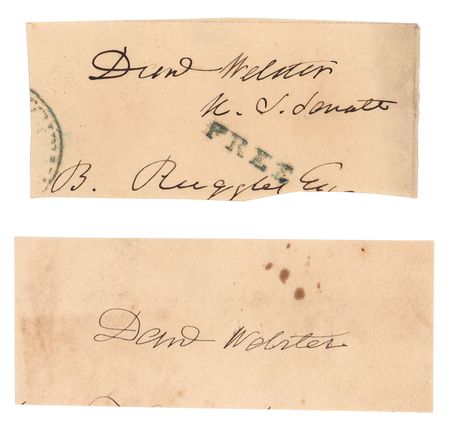 Danl Webster
U. S. Senate
FREE
B. Ruggles Esq
Danl Webster